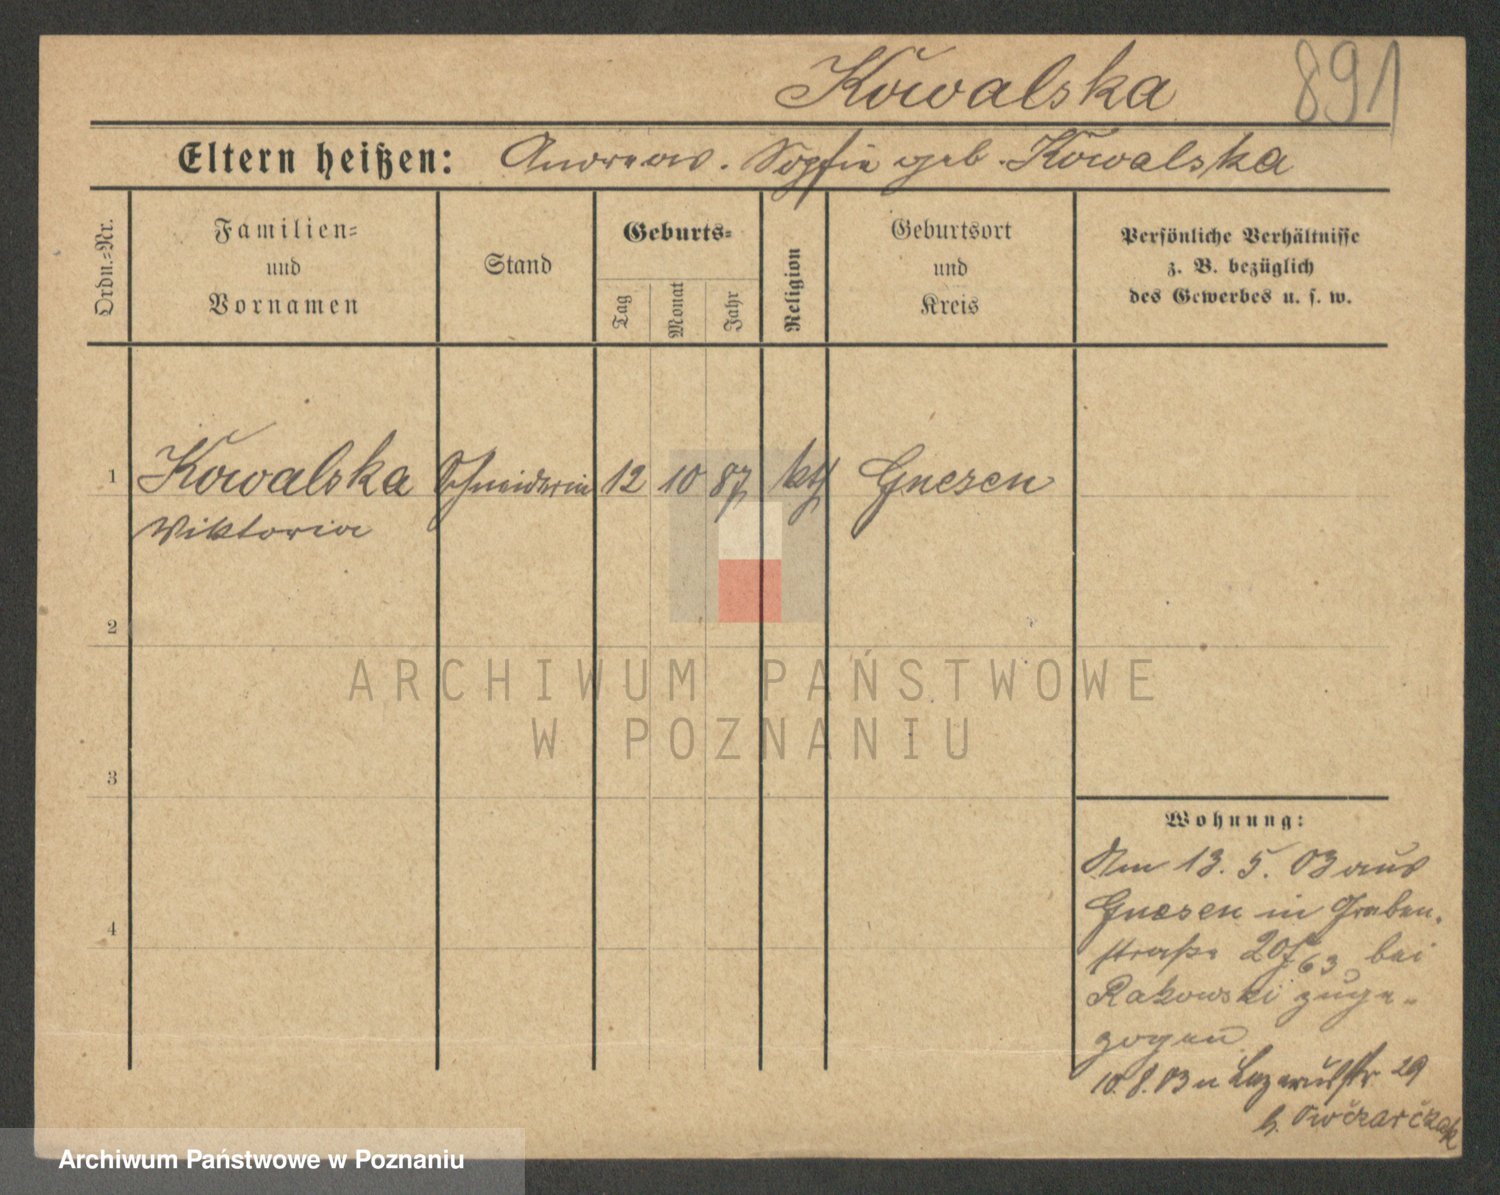 Kowalska 891
Eltern heißen: Andreas. Sophie geb. Kowalska
Ordn.=Nr.
Familien=
und
Vornamen
Stand
Geburts=
Tag
Monat
Jahr
Religion
Geburtsort
und
Kreis
Persönliche Verhältnisse
z. B. bezüglich
des Gewerbes u. s. w.
1 Kowalska Schneiderin 12 10 87 kth Gnesen
Wiktoria
2
ARCHIWUM PAŃSTWOWE
W POZNANIU
3
4
Wohnung:
Am 13. 5. 03 aus
Gnesen in Graben-
straße 20 63 bei
Rakowski zuge-
zogen
10. 8. 03 n Lazarusstr 29
b. Owczarczak
Archiwum Państwowe w Poznaniu